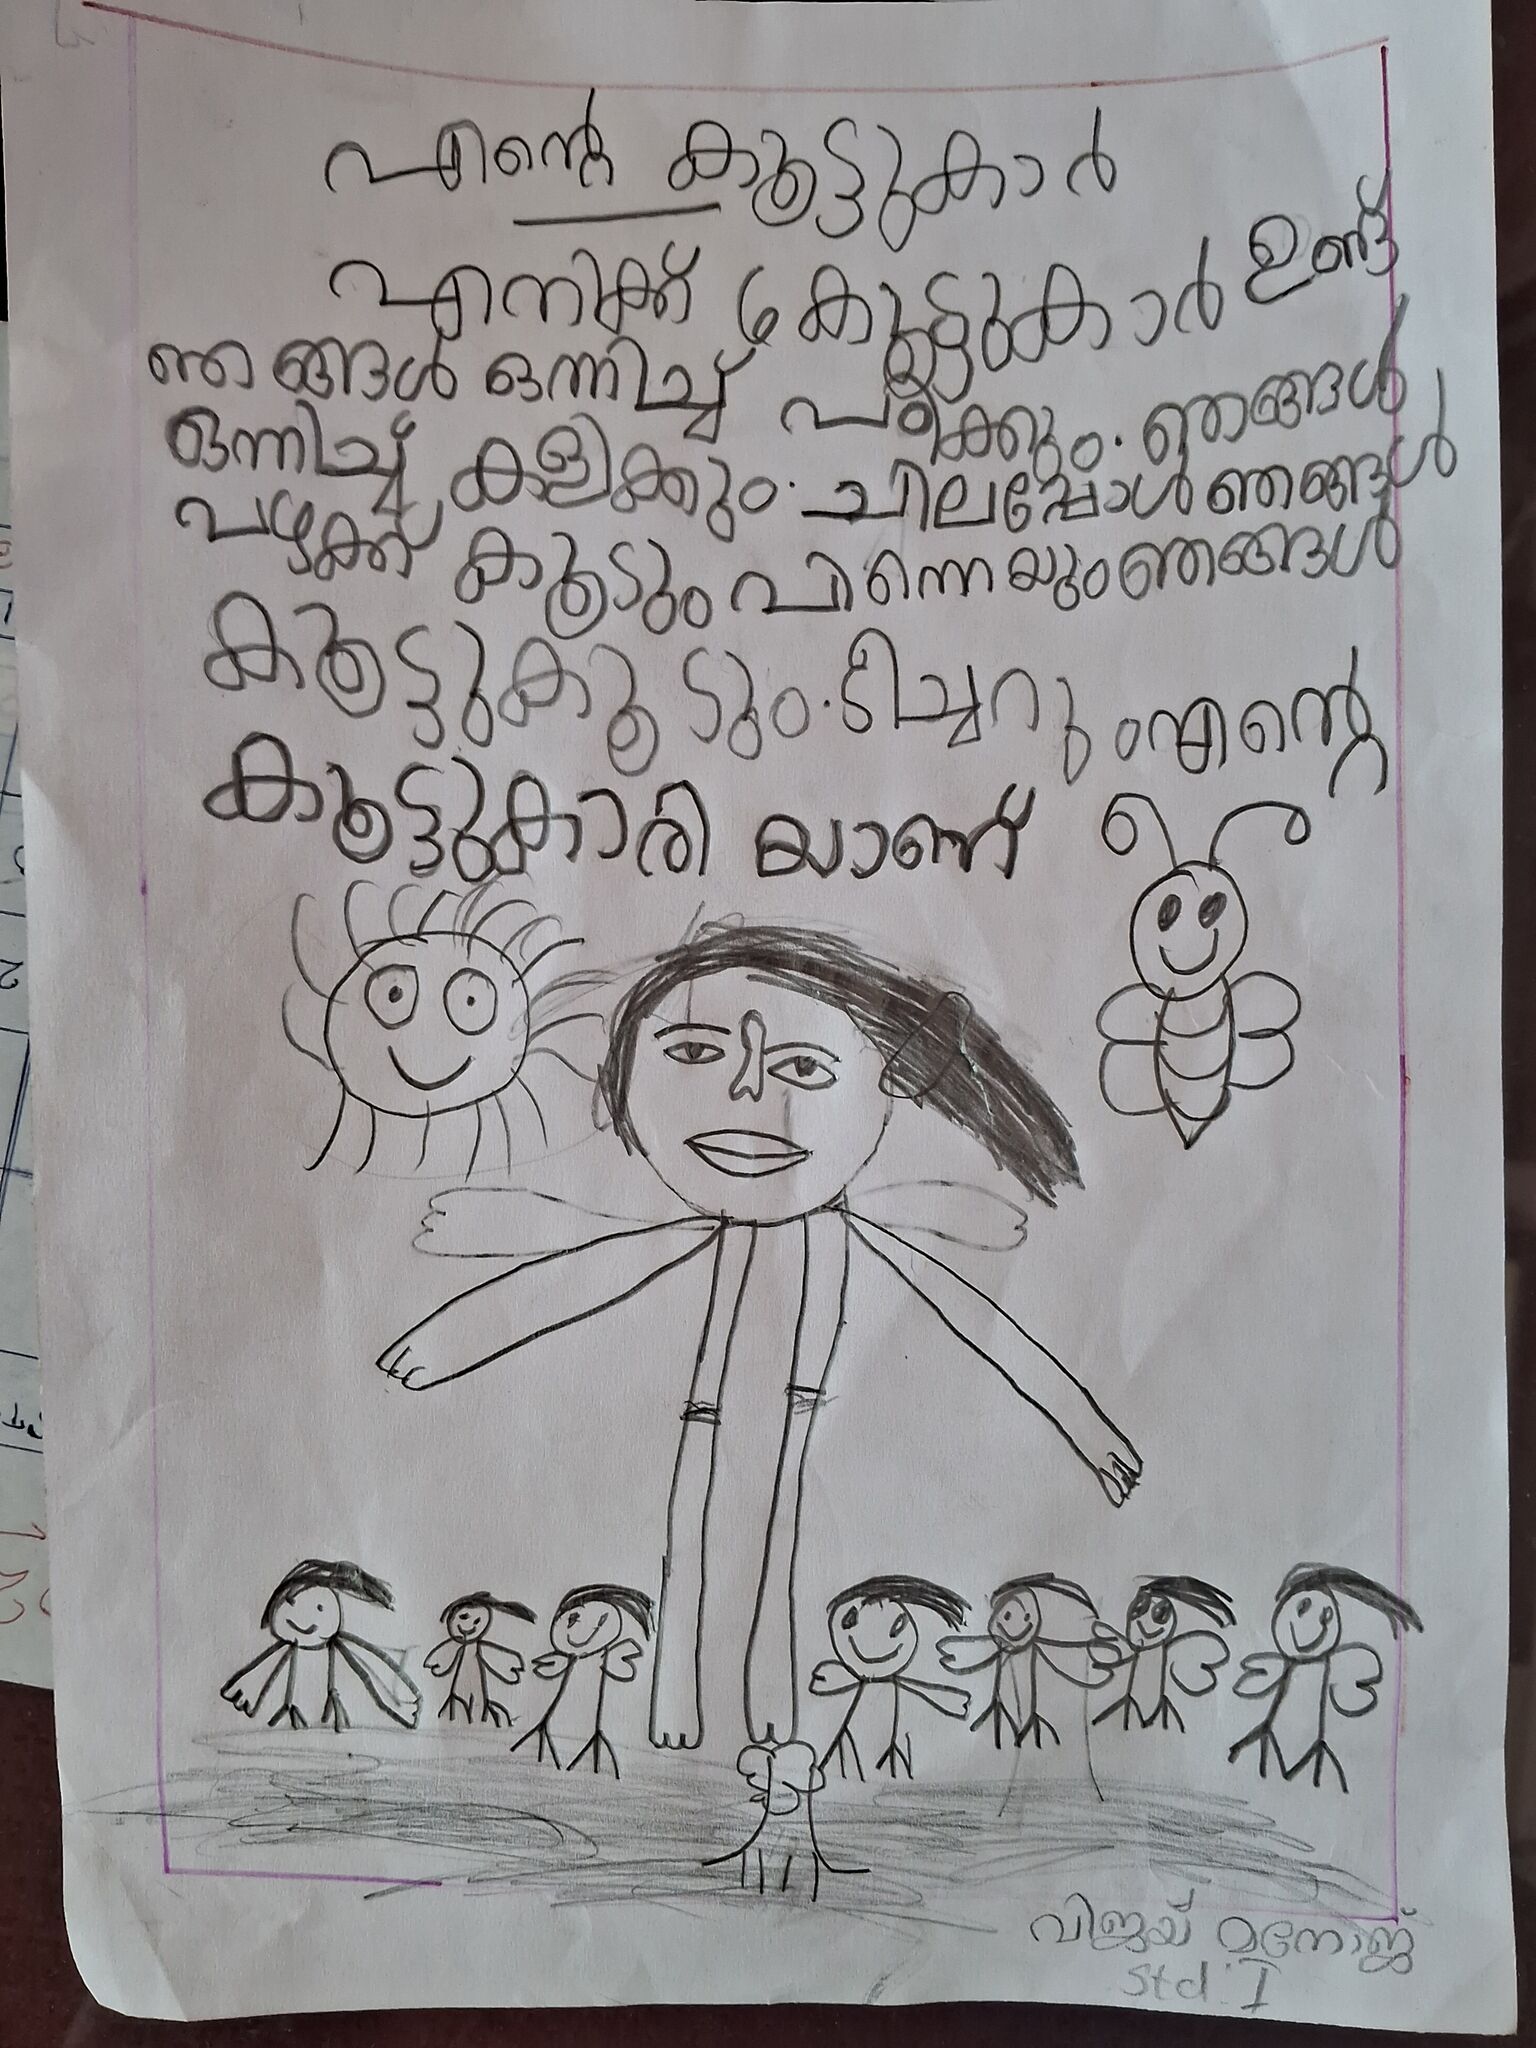 എന്റെ കൂട്ടുകാർ
എനിക്ക് 6 കൂട്ടുകാർ ഉണ്ട്
ഞങ്ങൾ ഒന്നിച്ച് പഠിക്കും. ഞങ്ങൾ
ഒന്നിച്ച് കളിക്കും. ചിലപ്പോൾ ഞങ്ങൾ
പഴക്ക് കൂടും പിന്നെയും ഞങ്ങൾ
കൂട്ടുകൂടും. ടീച്ചറും എന്റെ
കൂട്ടുകാരി യാണ്
വിജയ് മനോജ്
Std: I